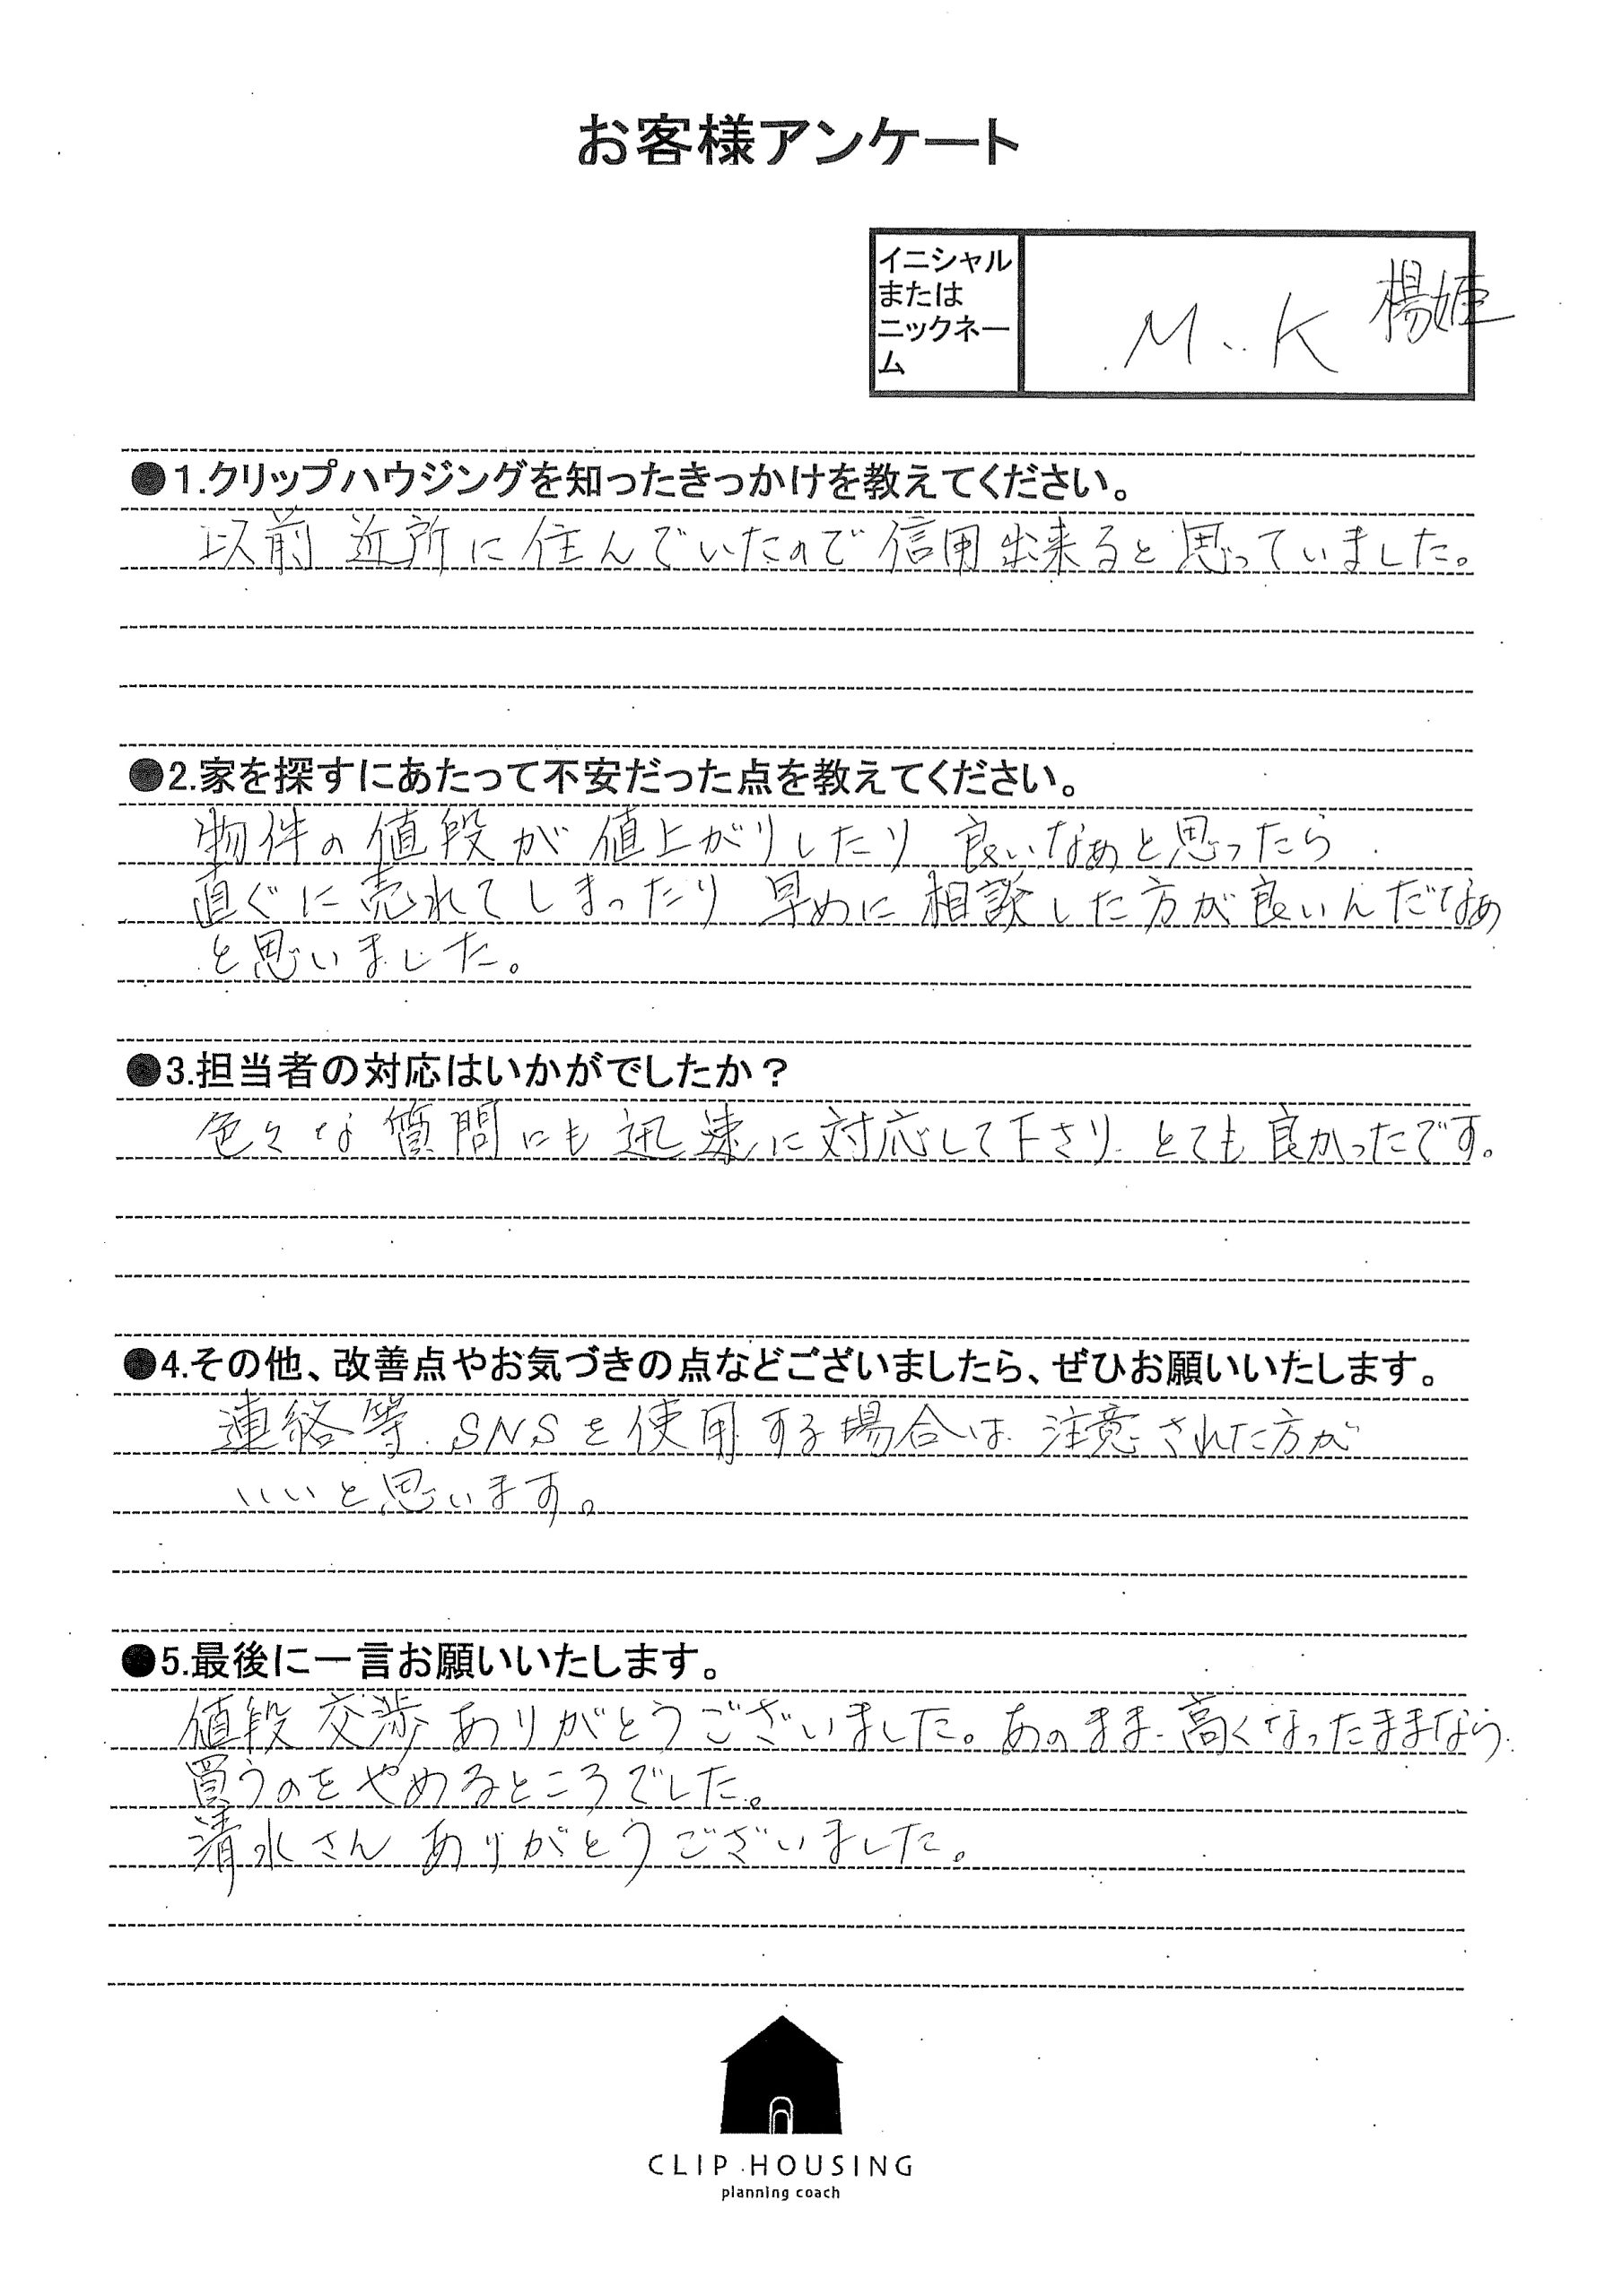 お客様アンケート
イニシャル
または
ニックネー
ム
M.K 楊姫
●1.クリップハウジングを知ったきっかけを教えてください。
以前近所に住んでいたので信用出来ると思っていました。
●2.家を探すにあたって不安だった点を教えてください。
物件の値段が値上がりしたり良いなぁと思ったら
直ぐに売れてしまったり早めに相談した方が良いんだなぁ
と思いました。
●3.担当者の対応はいかがでしたか？
色々な質問にも迅速に対応して下さりとても良かったです。
●4.その他、改善点やお気づきの点などございましたら、ぜひお願いいたします。
連絡等SNSを使用する場合は注意された方が
いいと思います。
●5.最後に一言お願いいたします。
値段交渉ありがとうございました。あのまま高くなったままなら
買うのをやめるところでした。
清水さんありがとうございました。
CLIP HOUSING
planning coach